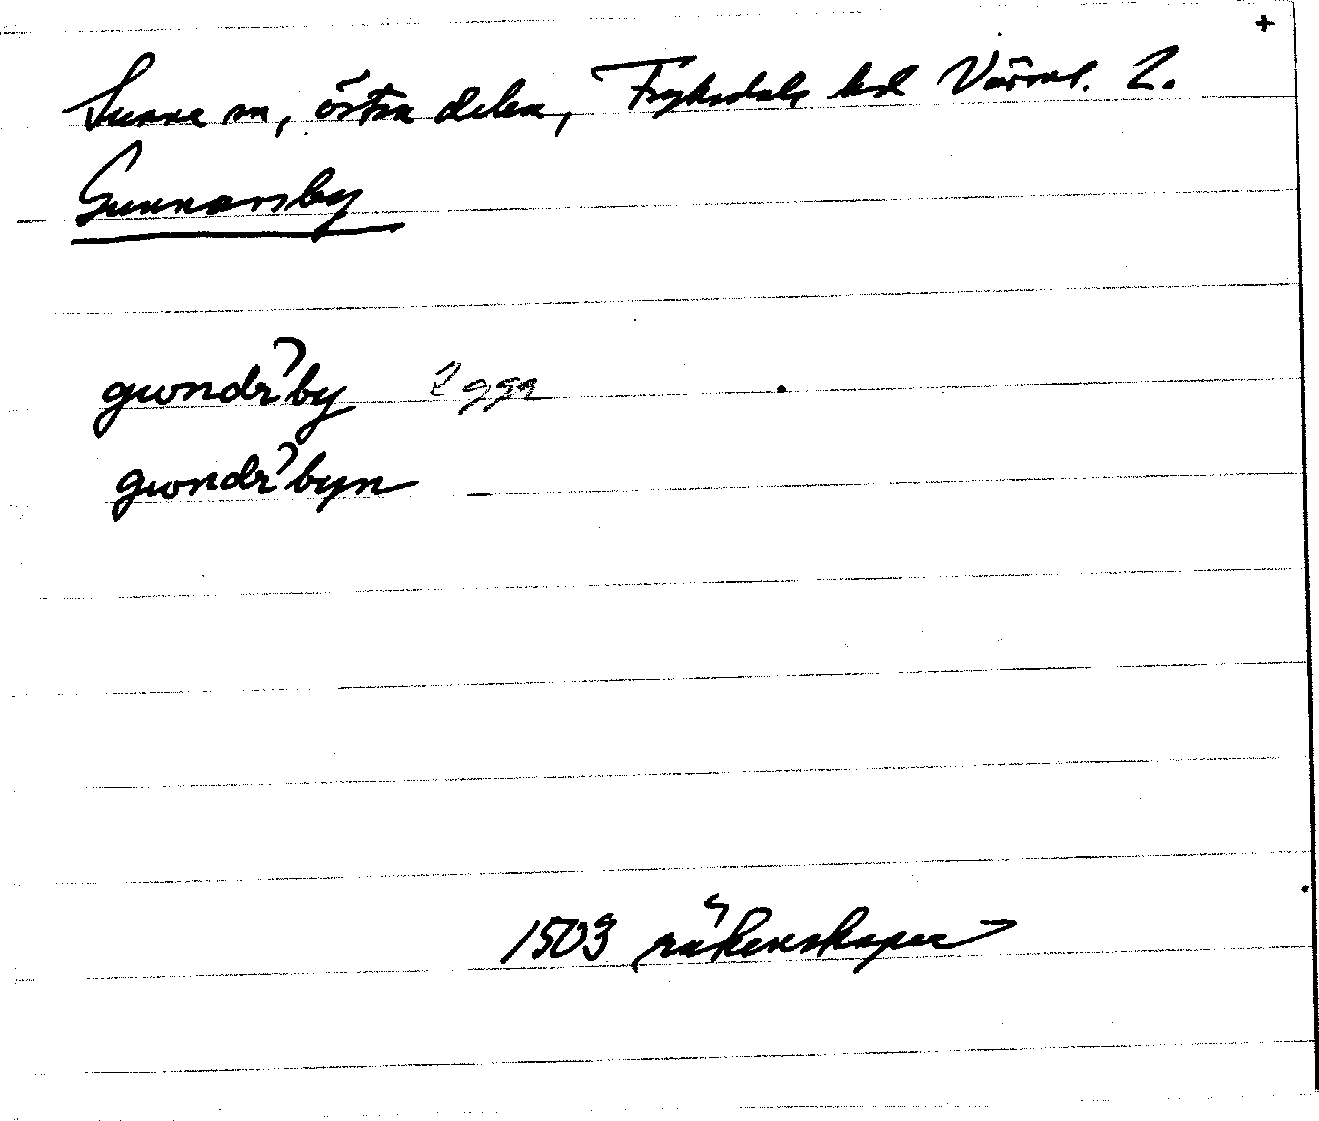 +
Sunne sn, östra delen, Fryksdals hd Värml. l.
Gunnarsby
gwndr by 2 ggr
gwndr byn
1503 räkenskaper